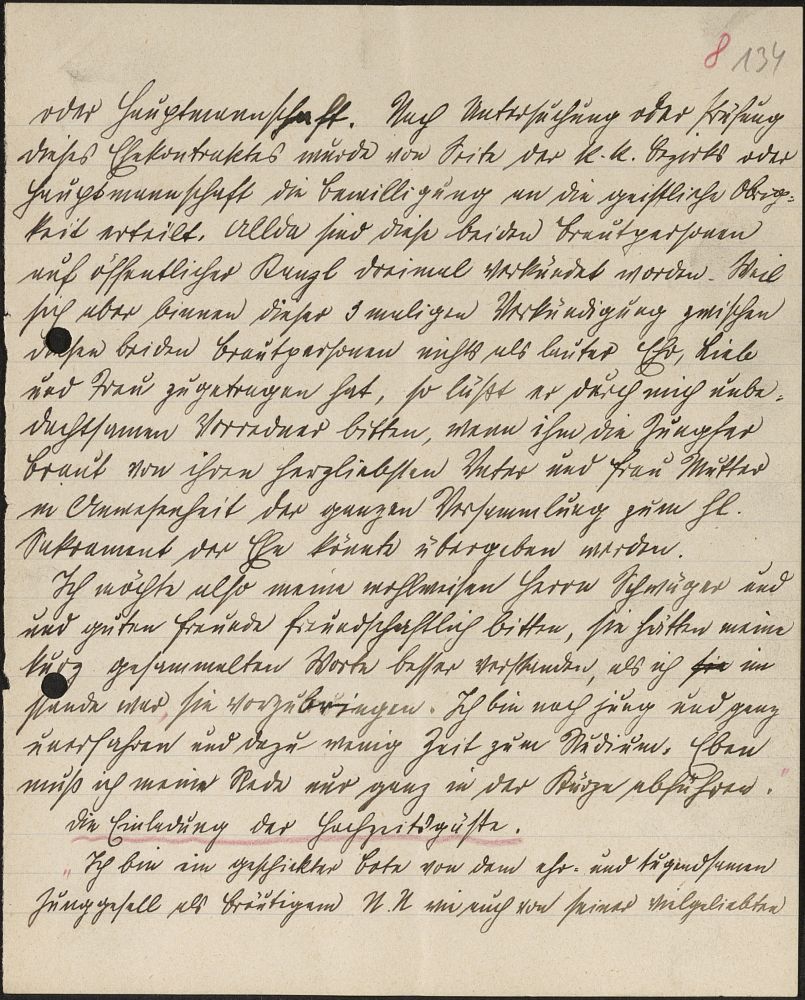 8 134
oder Hauptmannschaft. Nach Untersuchung oder Prüfung
dieses Ehekontraktes wurde von Seite der K. K. Bezirks oder
Hauptmannschaft die Bewilligung an die geistliche Obrig-
keit erteilt. Allda sind diese beiden Brautpersonen
auf öffentlicher Kanzl dreimal verkündet worden. Weil
sich aber binnen dieser 3 maligen Verkündigung zwischen
diesen beiden Brautpersonen nichts als lauter Ehr, Lieb
und Treu zugetragen hat, so läßt er durch mich unbe-
dachtsamen Vorredner bitten, wenn ihm die Jungfer
Braut von ihren herzliebsten Vater und Frau Mutter
in Anwesenheit der ganzen Versammlung zum hl.
Sakrament der Ehe könnte übergeben werden.
Ich möchte also meine wohlweisen Herrn Schwäger und
und guten Freunde freundschaftlich bitten, sie hätten meine
kurz gesammelten Worte besser verstanden, als ich sie im
stande war, sie vorzubringen. Ich bin noch jung und ganz
unerfahren und dazu wenig Zeit zum Studium. Eben
muß ich meine Rede nur ganz in der Kürze abführen."
die Einladung der Hochzeitsgäste.
"Ich bin ein geschickter Bote von dem ehr- und tugendsamen
Junggesell als Bräutigam N. N wie auch von seiner vielgeliebten